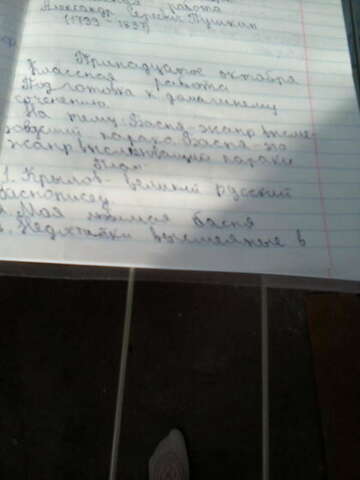 работа
Александр Сергеевич Пушкин
(1799 - 1837)
Тринадцатое октября
Классная работа
Подготовка к домашнему
сочинению.
На тему: Басня - жанр высме-
пороки. Басня - это
жанр высмеивающий пороки
План
1. Крылов - великий русский
баснописец.
Моя любимая басня
Недостатки высмеянные в